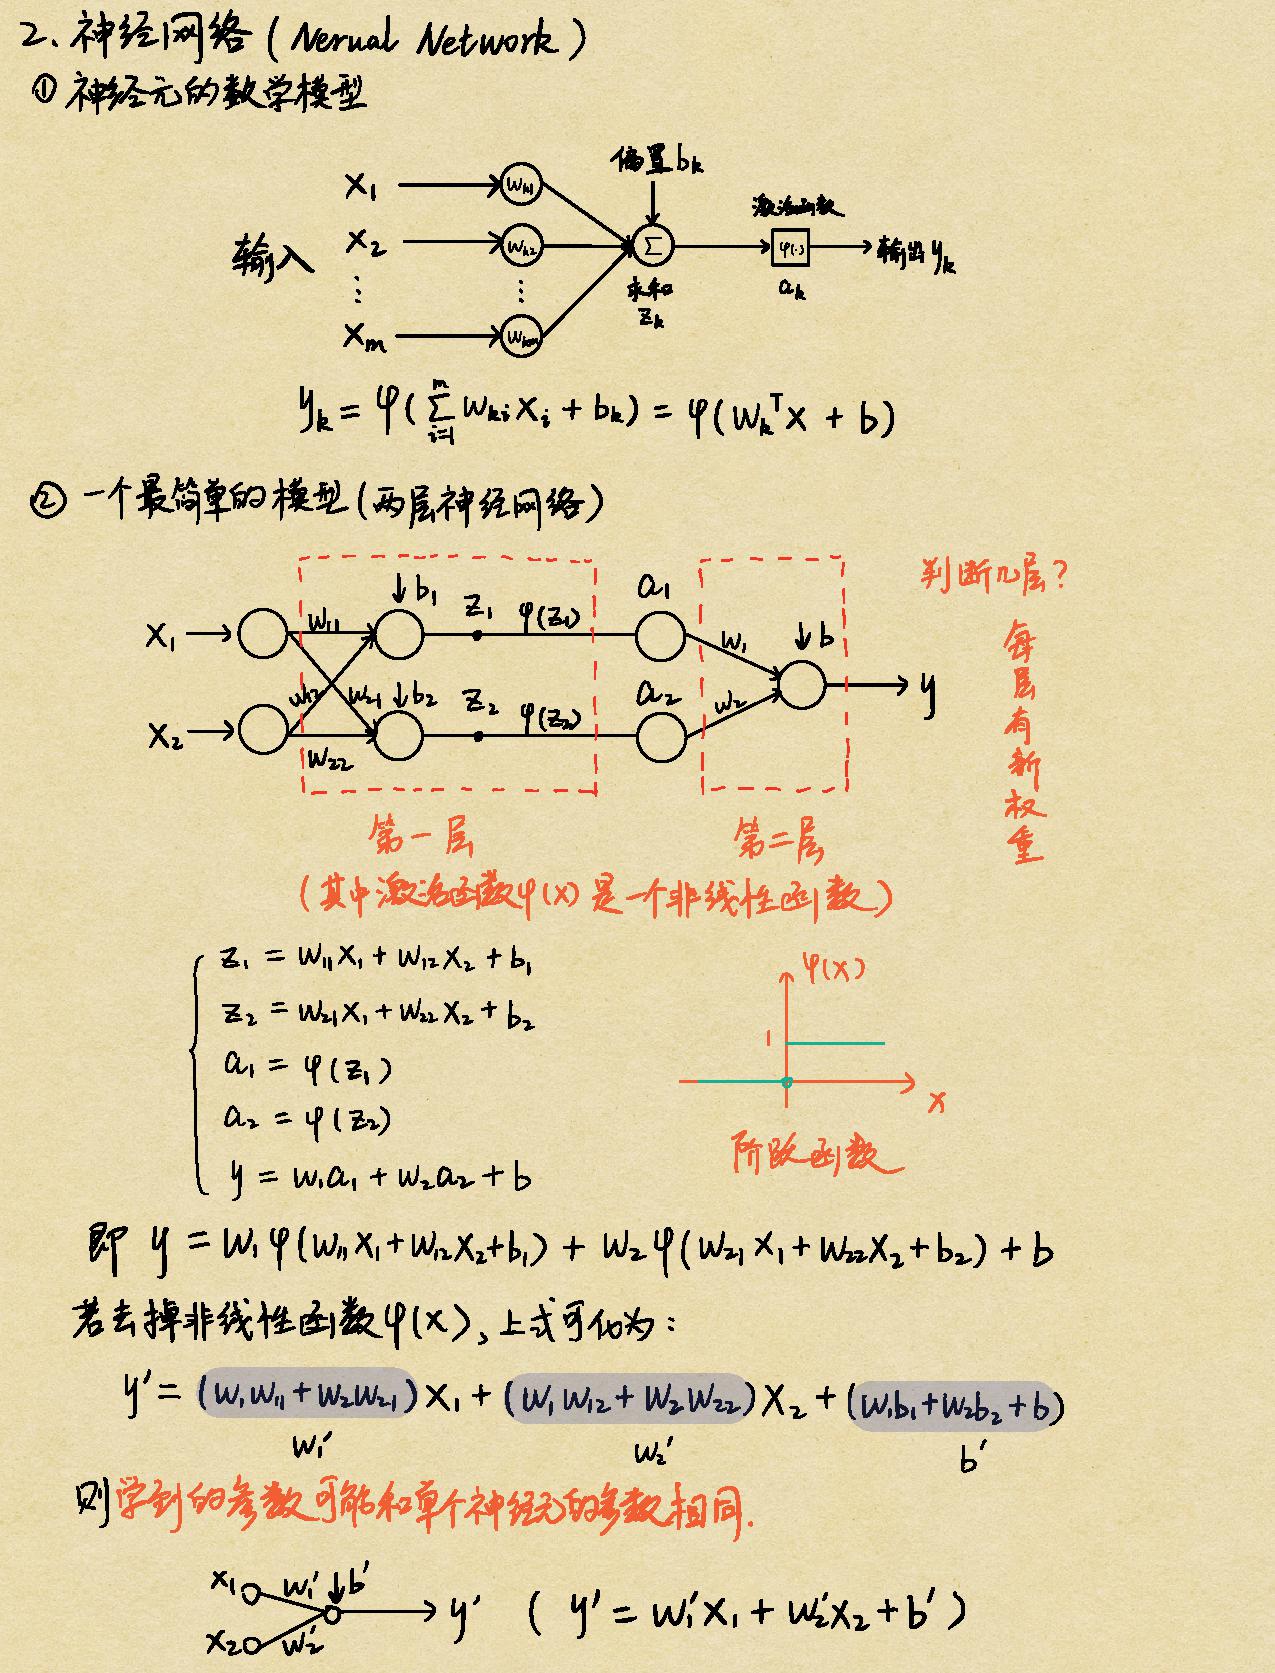 2. 神经网络 (Nerual Network)
① 神经元的数学模型
偏置 bₖ
x₁ wₖ₁
激活函数
输入 x₂ wₖ₂ Σ φ(·) 输出 yₖ
⋮ ⋮ 求和 aₖ
zₖ
xₘ wₖₘ
yₖ = φ(∑ᵢ₌₁ᵐ wₖᵢxᵢ + bₖ) = φ(wₖᵀx + b)
② 一个最简单的模型 (两层神经网络)
判断几层?
每层有新权重
x₁ w₁₁ ↓b₁ z₁ φ(z₁) a₁ w₁ ↓b
w₁₂ w₂₁ y
x₂ w₂₂ ↓b₂ z₂ φ(z₂) a₂ w₂
第一层 第二层
(其中激活函数φ(x) 是一个非线性函数)
z₁ = w₁₁x₁ + w₁₂x₂ + b₁
z₂ = w₂₁x₁ + w₂₂x₂ + b₂
a₁ = φ(z₁)
a₂ = φ(z₂)
y = w₁a₁ + w₂a₂ + b
φ(x)
1
x
阶跃函数
即 y = w₁φ(w₁₁x₁+w₁₂x₂+b₁) + w₂φ(w₂₁x₁+w₂₂x₂+b₂) + b
若去掉非线性函数φ(x), 上式可化为:
y′ = (w₁w₁₁+w₂w₂₁)x₁ + (w₁w₁₂+w₂w₂₂)x₂ + (w₁b₁+w₂b₂+b)
w₁′ w₂′ b′
则学到的参数可能和单个神经元的参数相同.
x₁ w₁′ ↓b′
y′ ( y′ = w₁′x₁ + w₂′x₂ + b′ )
x₂ w₂′